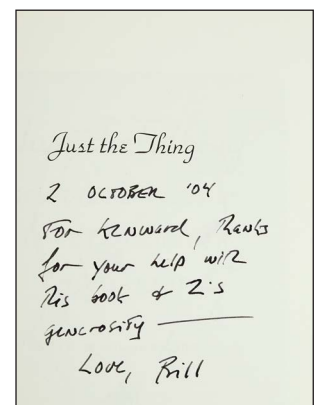 Just the Thing
2 OCTOBER '04
For Kenward, Thanks
for your help with
this book & Z's
generosity —
Love, Bill